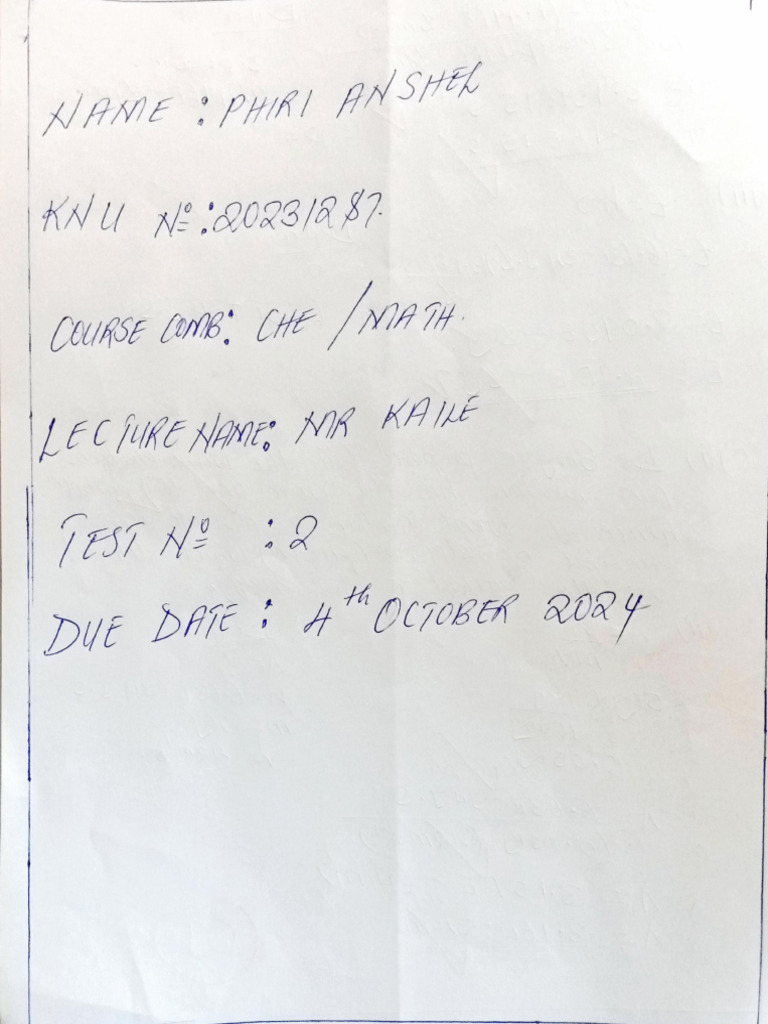 NAME : PHIRI ANSHEL
KNU Nº : 20231287.
COURSE COMB: CHE / MATH.
LECTURE NAME: MR KAILE
TEST Nº : 2
DUE DATE : 4th OCTOBER 2024